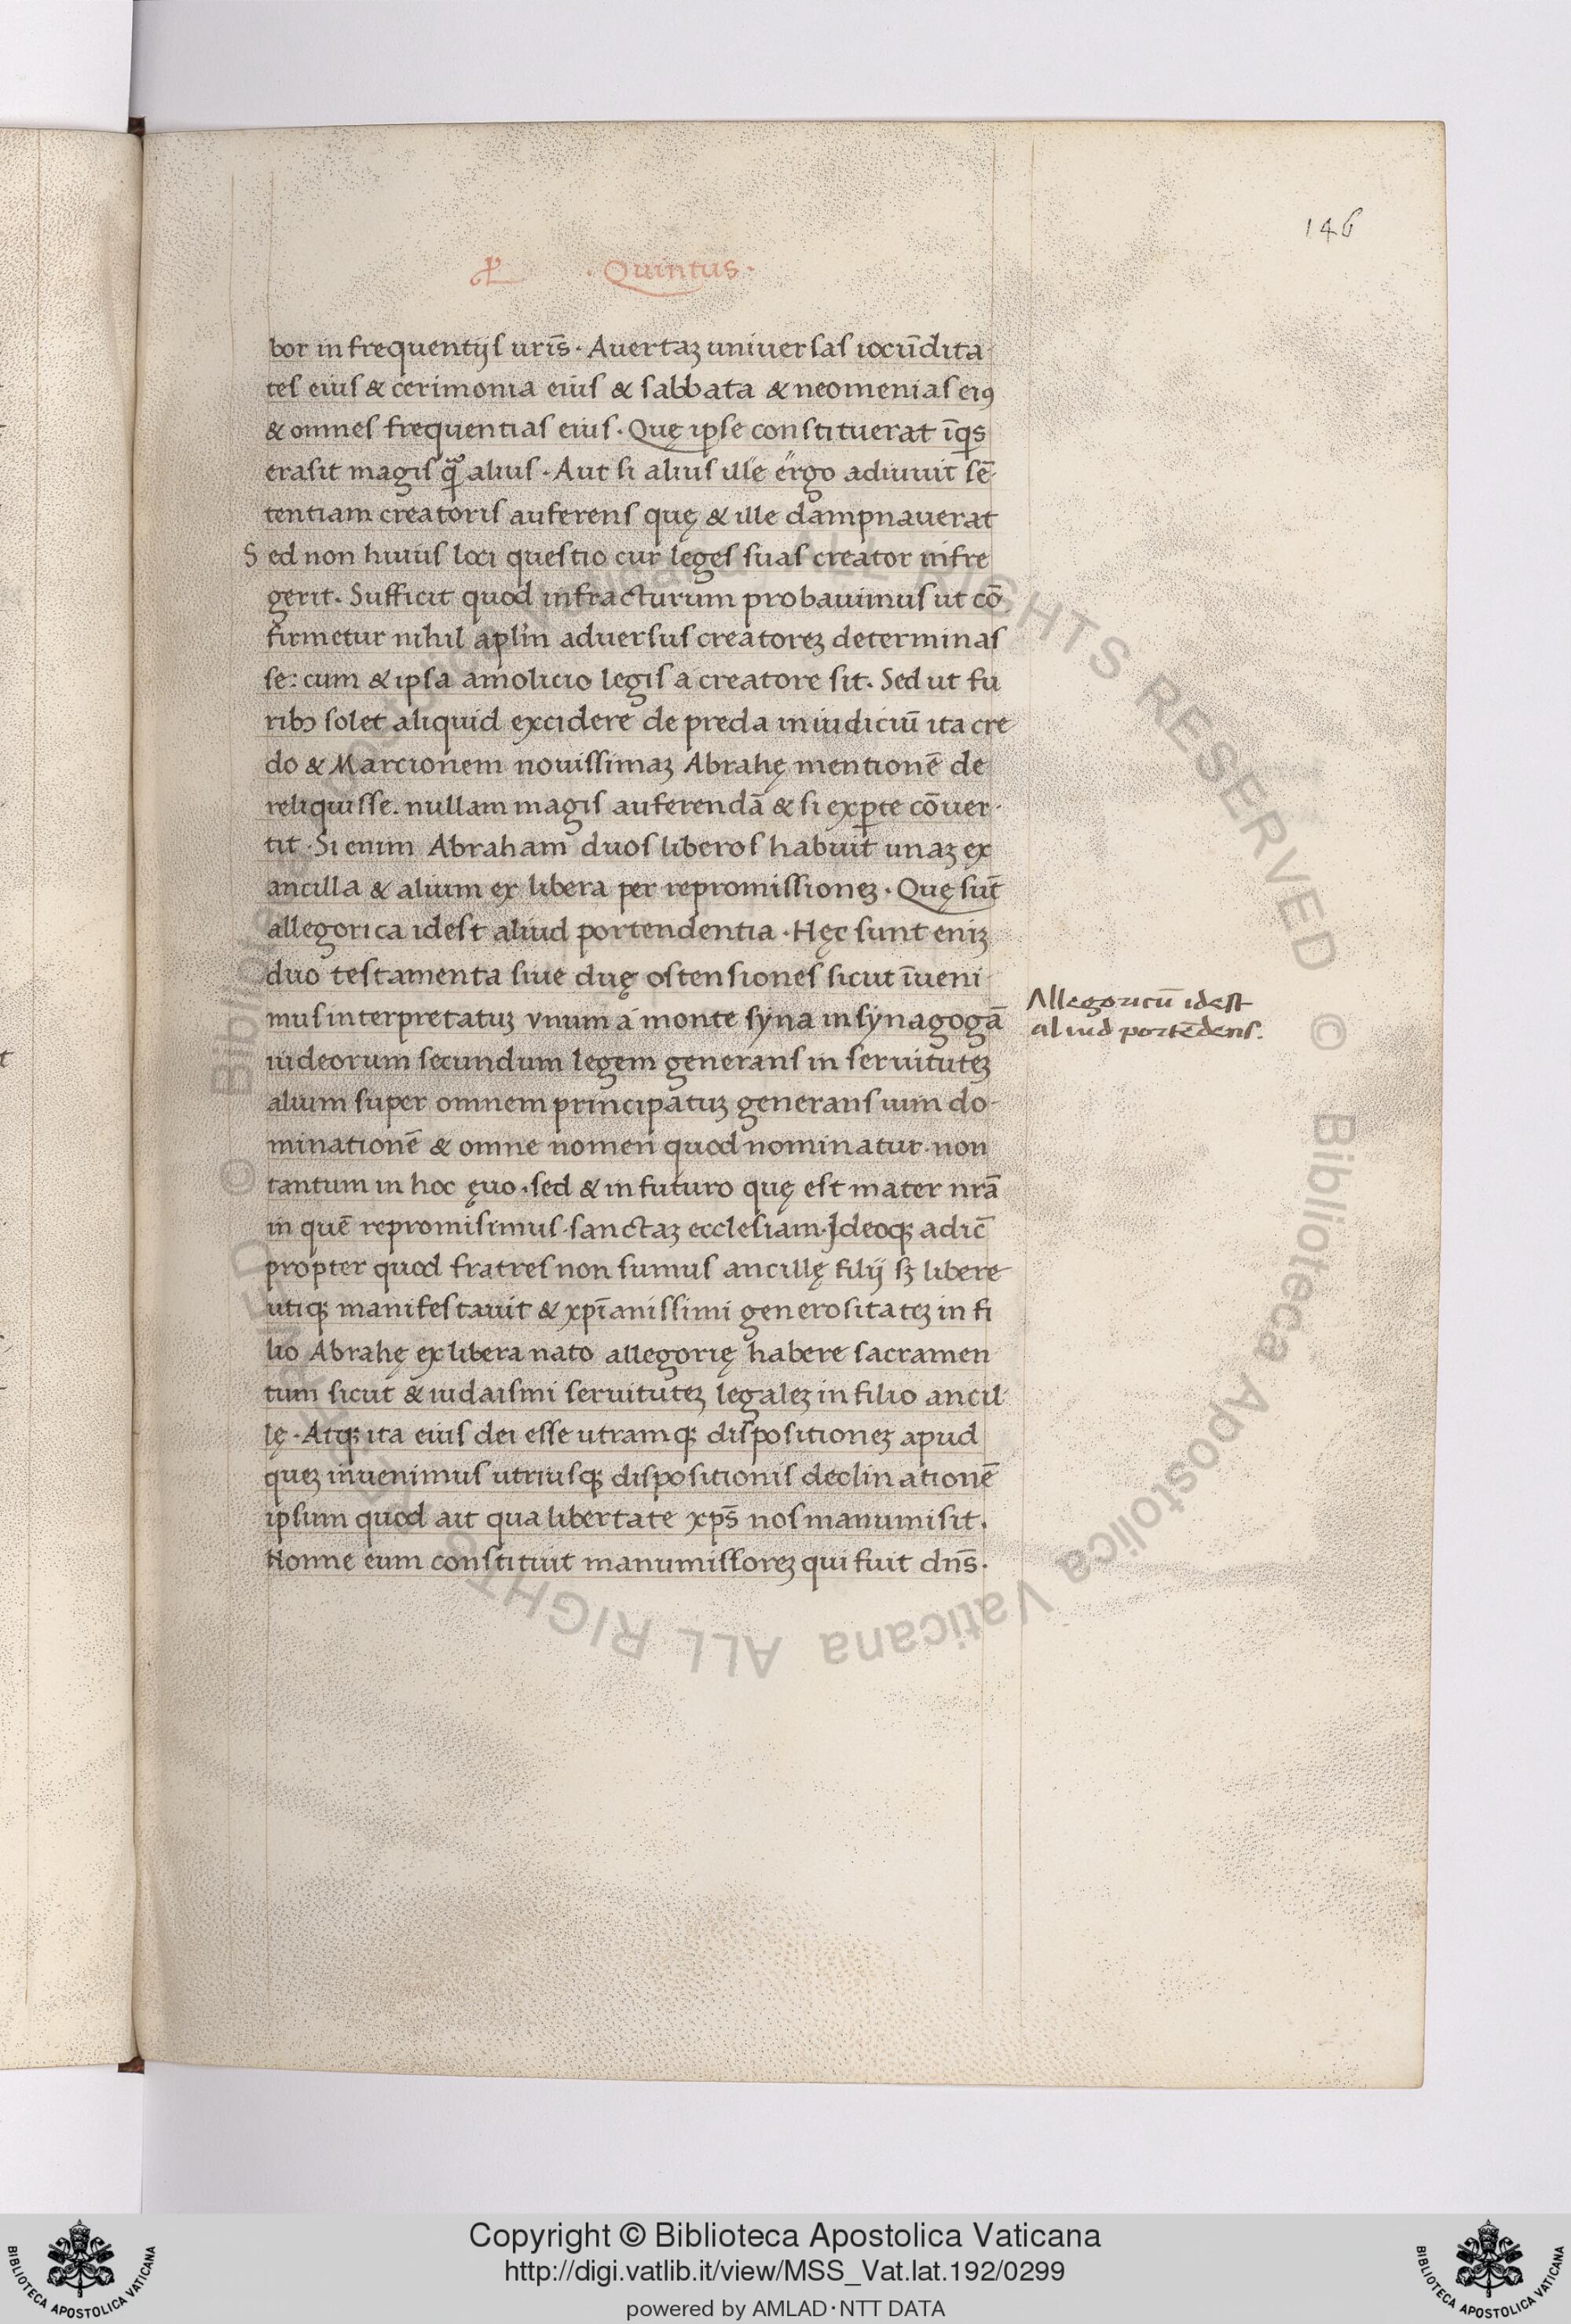 146
· Quintus ·
bor in frequentijs uris̄ · Auertaꝫ uniuersas iocūdita
tes eius & cerimonia eius & sabbata & neomenias eiꝯ
& omnes frequentias eius · Quę ipse constituerat īqs
erasit magis qͣ̃ alius · Aut si alius ille ergo adiuuit sē
tentiam creatoris auferens quę & ille dampnauerat
Sed non huius loci questio cur leges suas creator infre
gerit. Sufficit quod infracturum probauimus ut cō
firmetur nihil aplm̄ aduersus creatoreꝫ determinas
se: cum & ipsa amolicio legis a creatore sit. Sed ut fu
ribꝫ solet aliquid excidere de preda in iudiciū ita cre
do & Marcionem nouissimaꝫ Abrahę mentionē de
reliquisse. nullam magis auferendā & si ex ꝑte cōuer-
tit · Si enim Abraham duos liberos habuit unaꝫ ex
ancilla & alium ex libera per repromissioneꝫ · Quę sūt
allegorica idest aliud portendentia · Hęc sunt eniꝫ
duo testamenta siue duę ostensiones sicut īueni
mus interpretatuꝫ vnum á monte syna in synagogā
iudeorum secundum legem generans in seruituteꝫ
alium super omnem principatuꝫ generans uim do-
minationē & omne nomen quod nominatur · non
tantum in hoc ęuo · sed & in futuro quę est mater nrā
in quē repromisimus · sanctaꝫ ecclesiam · Ideoqꝫ adic̄
propter quod fratres non sumus ancillę filij sꝫ libere
utiqꝫ manifestauit & xpīanissimi generositateꝫ in fi
lio Abrahę ex libera nato allegorię habere sacramen
tum sicut & iudaismi seruituteꝫ legaleꝫ in filio ancil
lę · Atqꝫ ita eius dei esse utramqꝫ dispositioneꝫ apud
queꝫ inuenimus utriusqꝫ dispositionis declinationē
ipsum quod ait qua libertate xps̄ nos manumisit.
Nonne eum constituit manumissoreꝫ qui fuit dns̄ ·
Allegoricū idest
aliud portēdens.
© Biblioteca Apostolica Vaticana ALL RIGHTS RESERVED
© Biblioteca Apostolica Vaticana ALL RIGHTS RESERVED
BIBLIOTECA APOSTOLICA VATICANA
Copyright © Biblioteca Apostolica Vaticana
http://digi.vatlib.it/view/MSS_Vat.lat.192/0299
powered by AMLAD·NTT DATA
BIBLIOTECA APOSTOLICA VATICANA